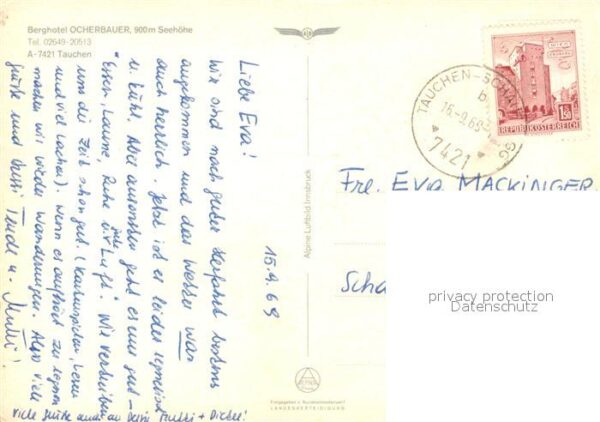 Berghotel OCHERBAUER, 900m Seehöhe
Tel. 02649-20513
A-7421 Tauchen
15.9.69
Liebe Eva!
Wir sind nach guter Herfahrt bestens
angekommen und das Wetter war
auch herrlich. Jetzt ist es leider regnerisch
u. kühl. Aber ansonsten geht es uns gut –
Essen, Laune, Ruhe u. gute Luft. Wir vertreiben
uns die Zeit schon gut. (Kartenspielen, Lesen
und viel Lachen). Wenn es aufhört zu regnen
machen wir wieder Wanderungen. Also viele
Grüße und Bussi u. Mutti!
Viele Grüße auch an Deine Mutti +
Alpine Luftbild Innsbruck
ALPINE
Freigegeben v. Bundesministerium f.
LANDESVERTEIDIGUNG
WIEN
1.50
REPUBLIK ÖSTERREICH
TAUCHEN-SCHA GG
b
16.-9.69
7421
Frl. EVA MACKINGER
Scha
privacy protection
Datenschutz